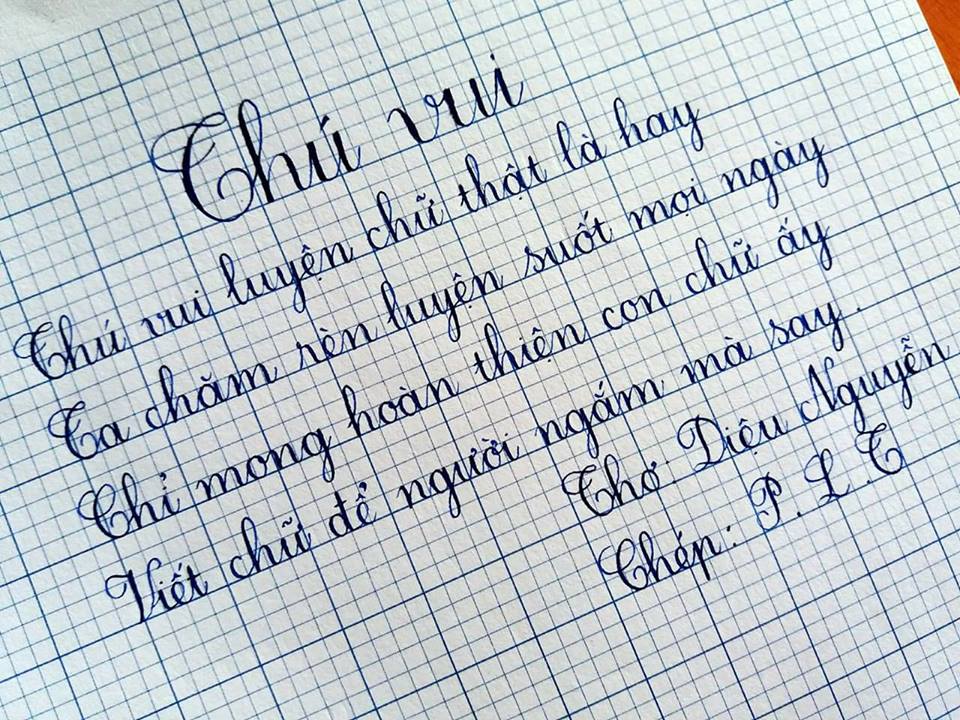 Thú vui
Thú vui luyện chữ thật là hay
Ta chăm rèn luyện suốt mọi ngày
Chỉ mong hoàn thiện con chữ ấy
Viết chữ để người ngắm mà say.
Thơ. Diệu Nguyễn
Chép: P. L. T